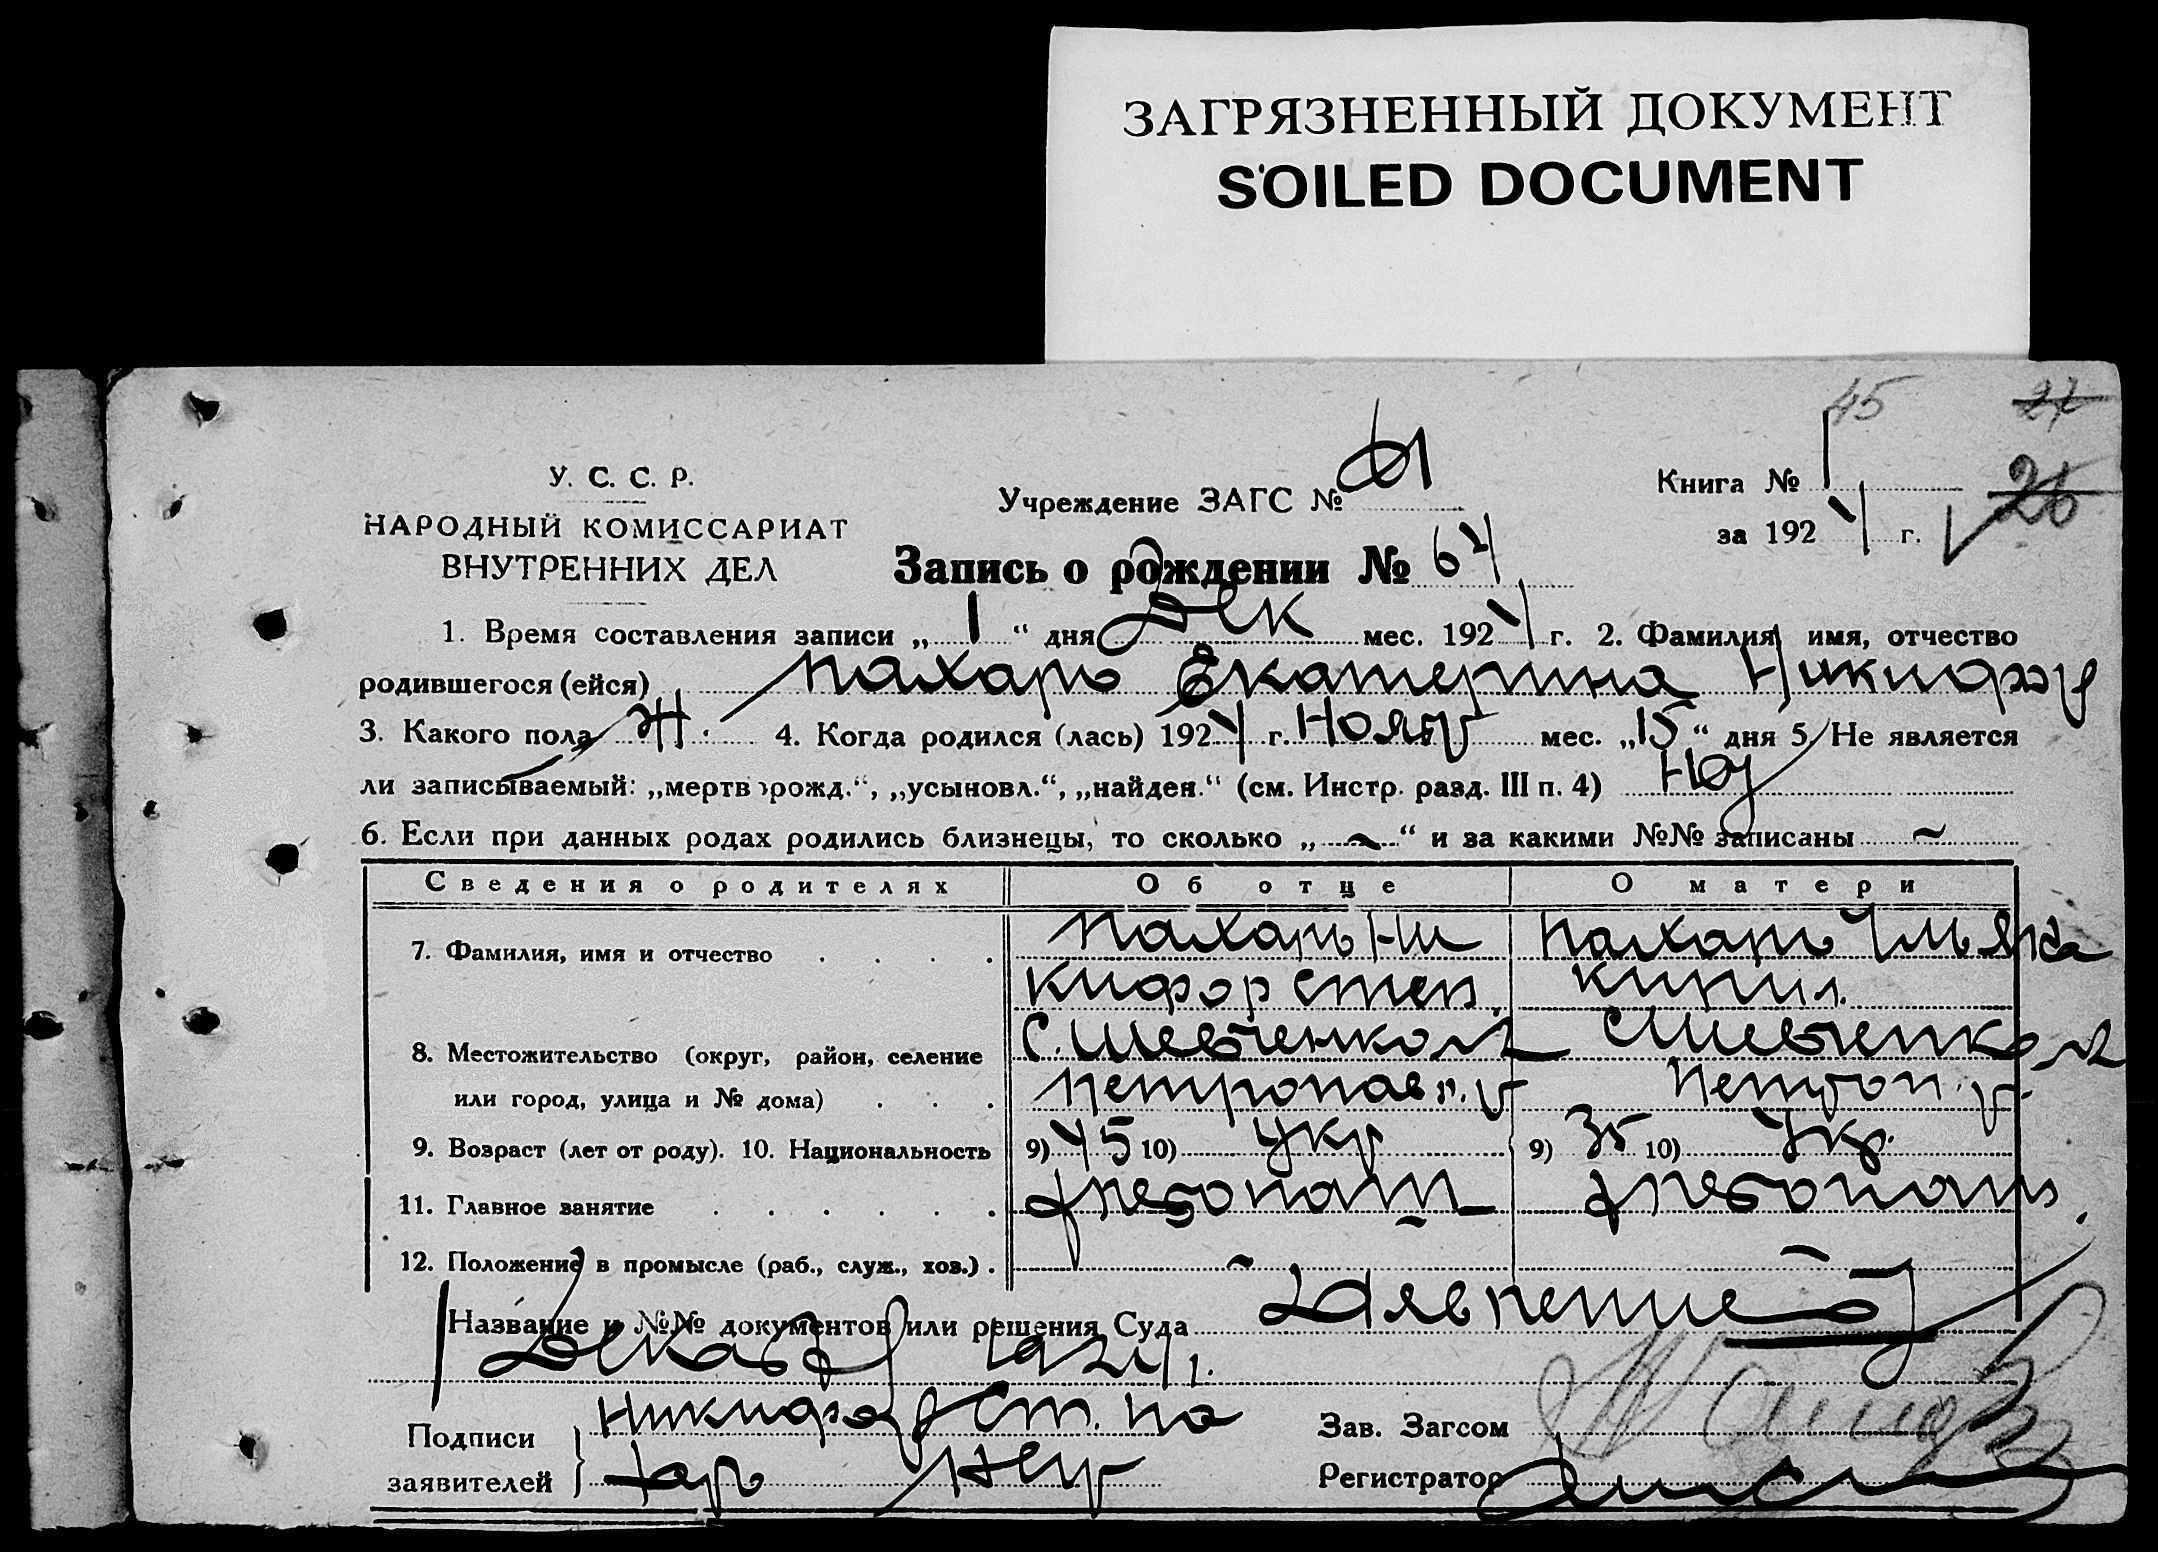 ЗАГРЯЗНЕННЫЙ ДОКУМЕНТ
SOILED DOCUMENT
45 27
У. С. С. Р.
НАРОДНЫЙ КОМИССАРИАТ
ВНУТРЕННИХ ДЕЛ
Учреждение ЗАГС №
Книга № 1
за 1924 г. 26
Запись о рождении № 64
1. Время составления записи „1“ дня Дек мес. 1924 г. 2. Фамилия, имя, отчество
родившегося (ейся) Пахарь Екатерина Никифор
3. Какого пола Ж. 4. Когда родился (лась) 1924 г. Нояб мес. „15“ дня 5. Не является
ли записываемый: „мертворожд.“, „усыновл.“, „найден.“ (см. Инстр. разд. III п. 4)
6. Если при данных родах родились близнецы, то сколько „~“ и за какими №№ записаны ~
Сведения о родителях Об отце О матери
7. Фамилия, имя и отчество . . . . Пахарь Ни Пахарь Ульяна
кифор Степ Кирил.
8. Местожительство (округ, район, селение С. Шевченко С Шевченко
или город, улица и № дома) . . . Петропавл. р Петроп. р.
9. Возраст (лет от роду). 10. Национальность 9) 45 10) Укр 9) 35 10) Укр.
11. Главное занятие . . . . . . хлебопаш хлебопаш.
12. Положение в промысле (раб., служ., хоз.) . ~ ~
Название и №№ документов или решения Суда Заявление
1 Декабр 1924 г.
Подписи
заявителей
Никифор Ст. Па
харь
Зав. Загсом
Регистратор